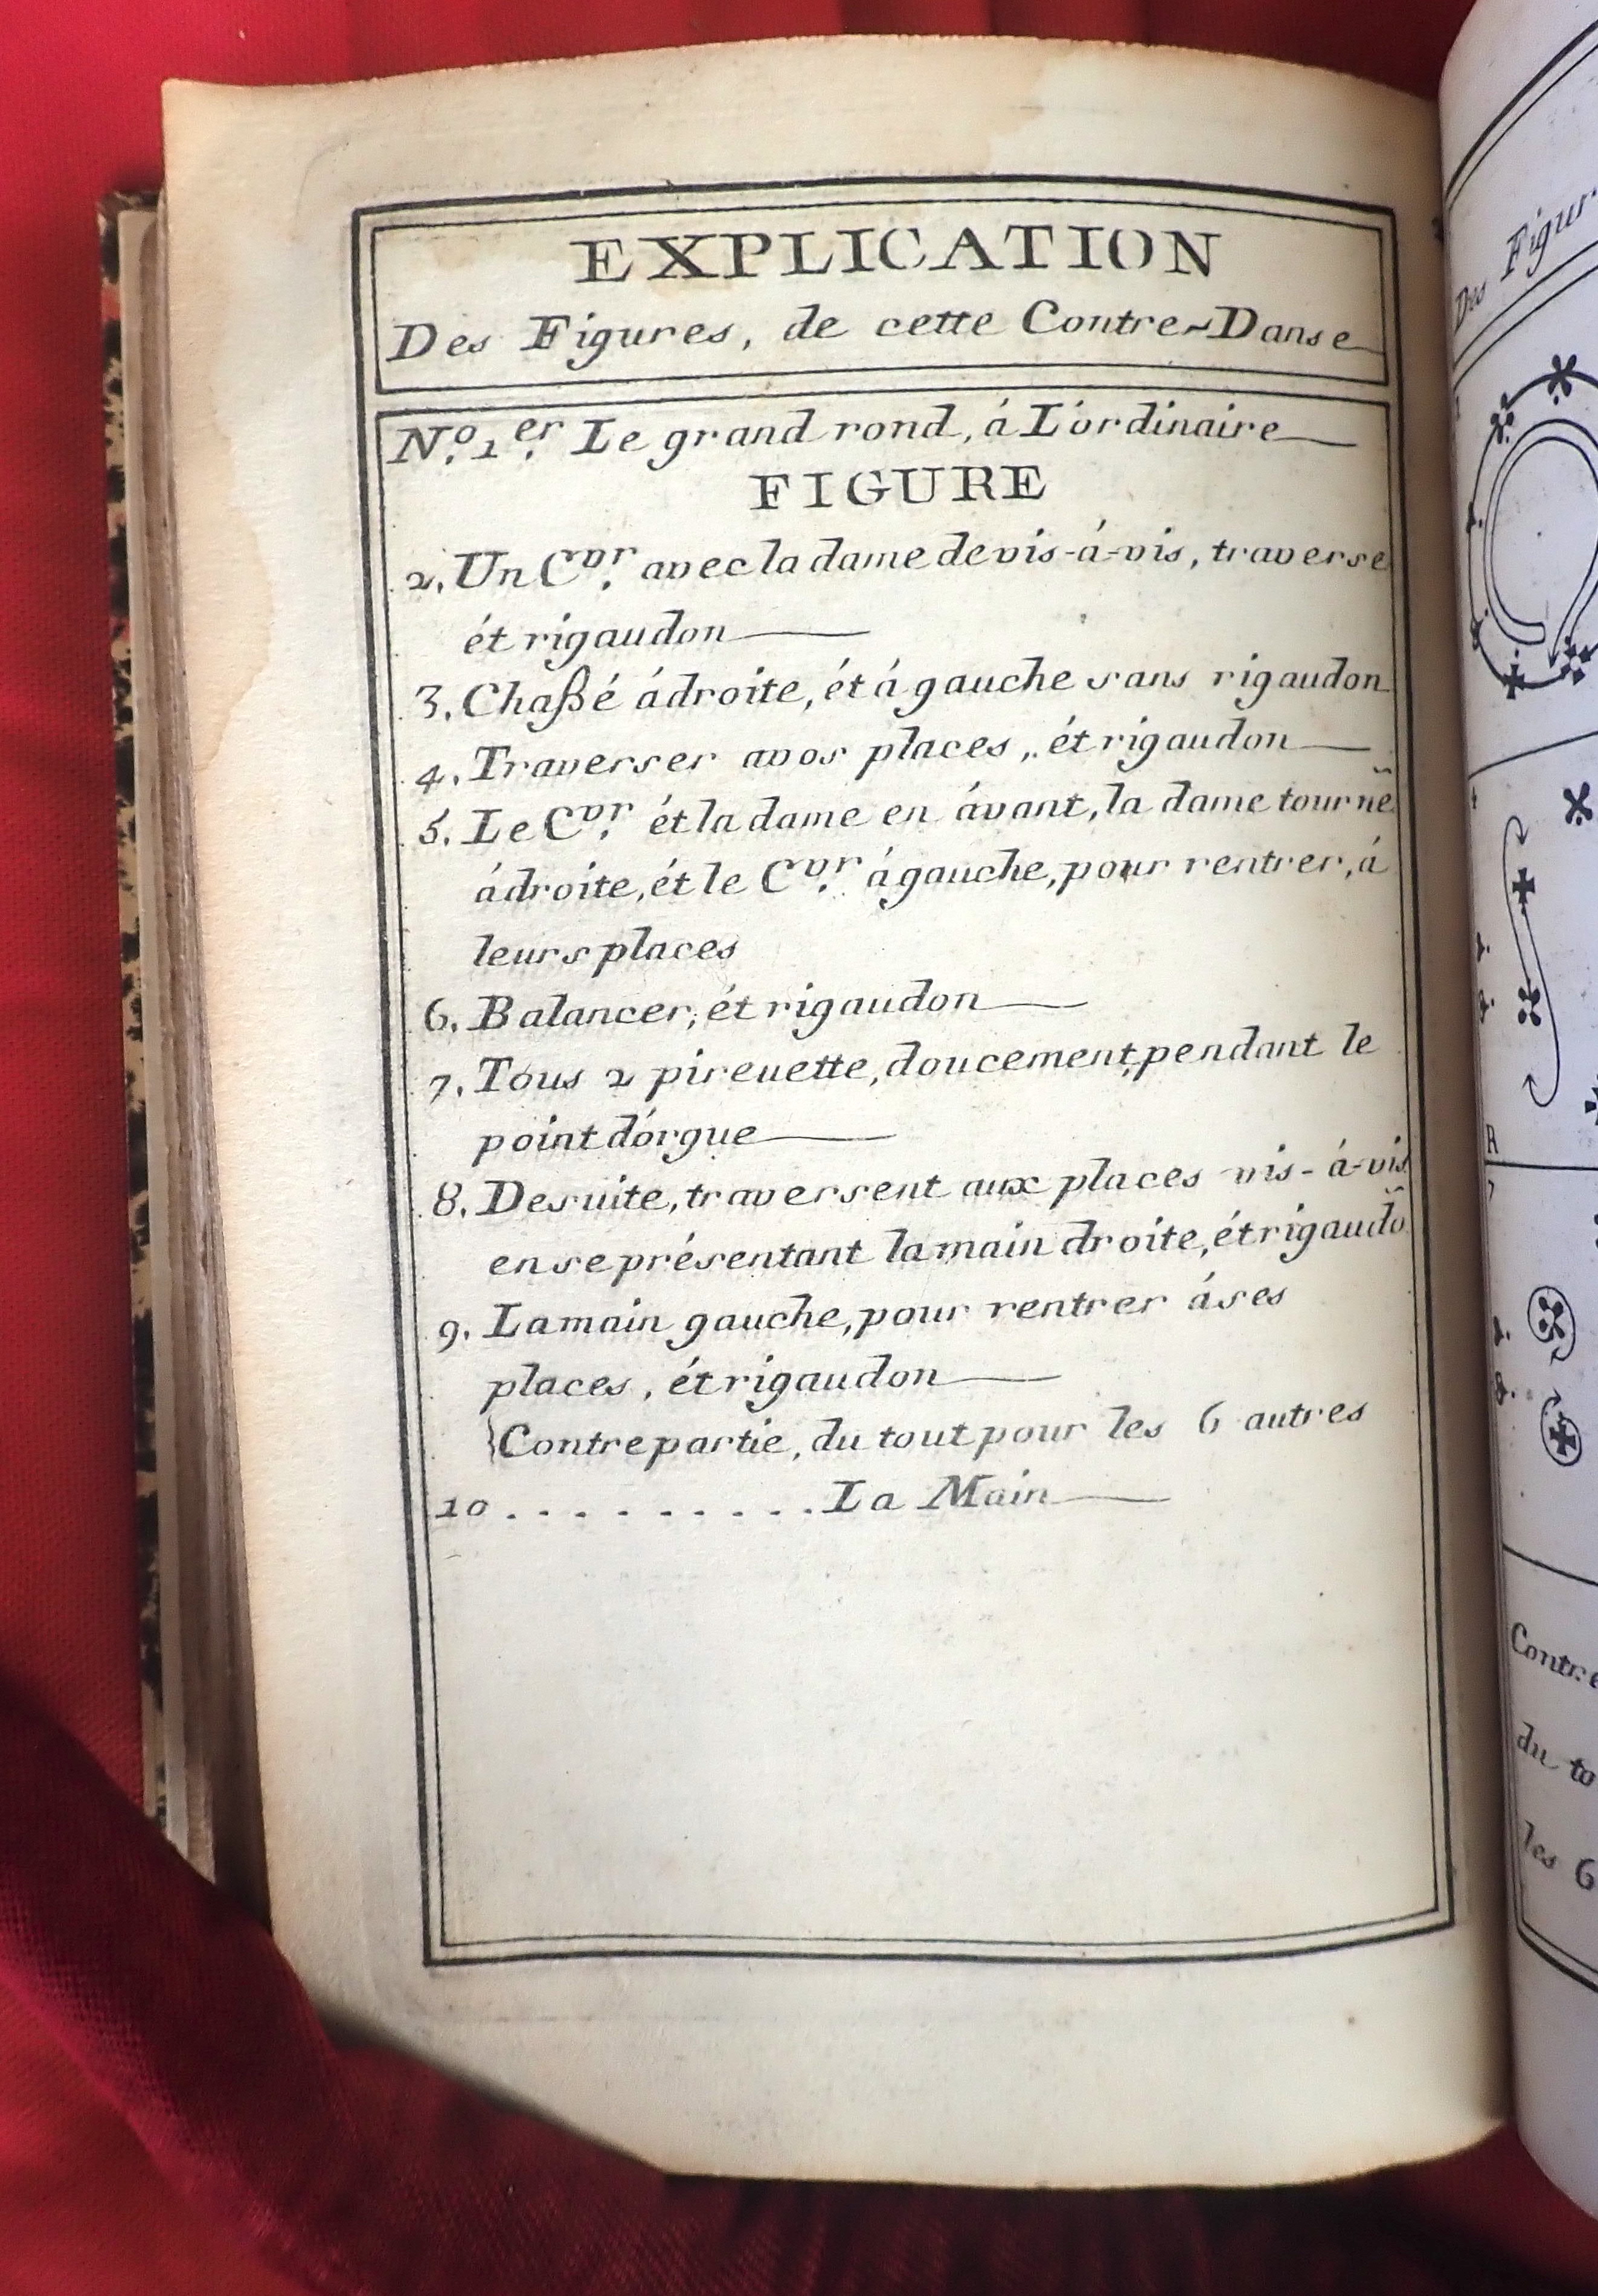 EXPLICATION
Des Figures, de cette Contre-Danse
N.º 1.er Le grand rond, á L'ordinaire
FIGURE
2. Un C.vr avec la dame de vis-á-vis, traverse
ét rigaudon
3. Chaßé ádroite, ét á gauche sans rigaudon
4. Traverser avos places, ét rigaudon
5. Le C.vr ét la dame en ávant, la dame tourne
ádroite, ét le C.vr ágauche, pour rentrer, á
leurs places
6. Balancer, ét rigaudon
7. Tous 2 pireuette, doucement, pendant le
point d'orgue
8. Desuite, traversent aux places vis-á-vis
en se présentant la main droite, ét rigaudõ
9. La main gauche, pour rentrer áses
places, ét rigaudon
Contrepartie, du tout pour les 6 autres
10 . . . . . . . . . . La Main
Des Figur
Contre
du to
les 6